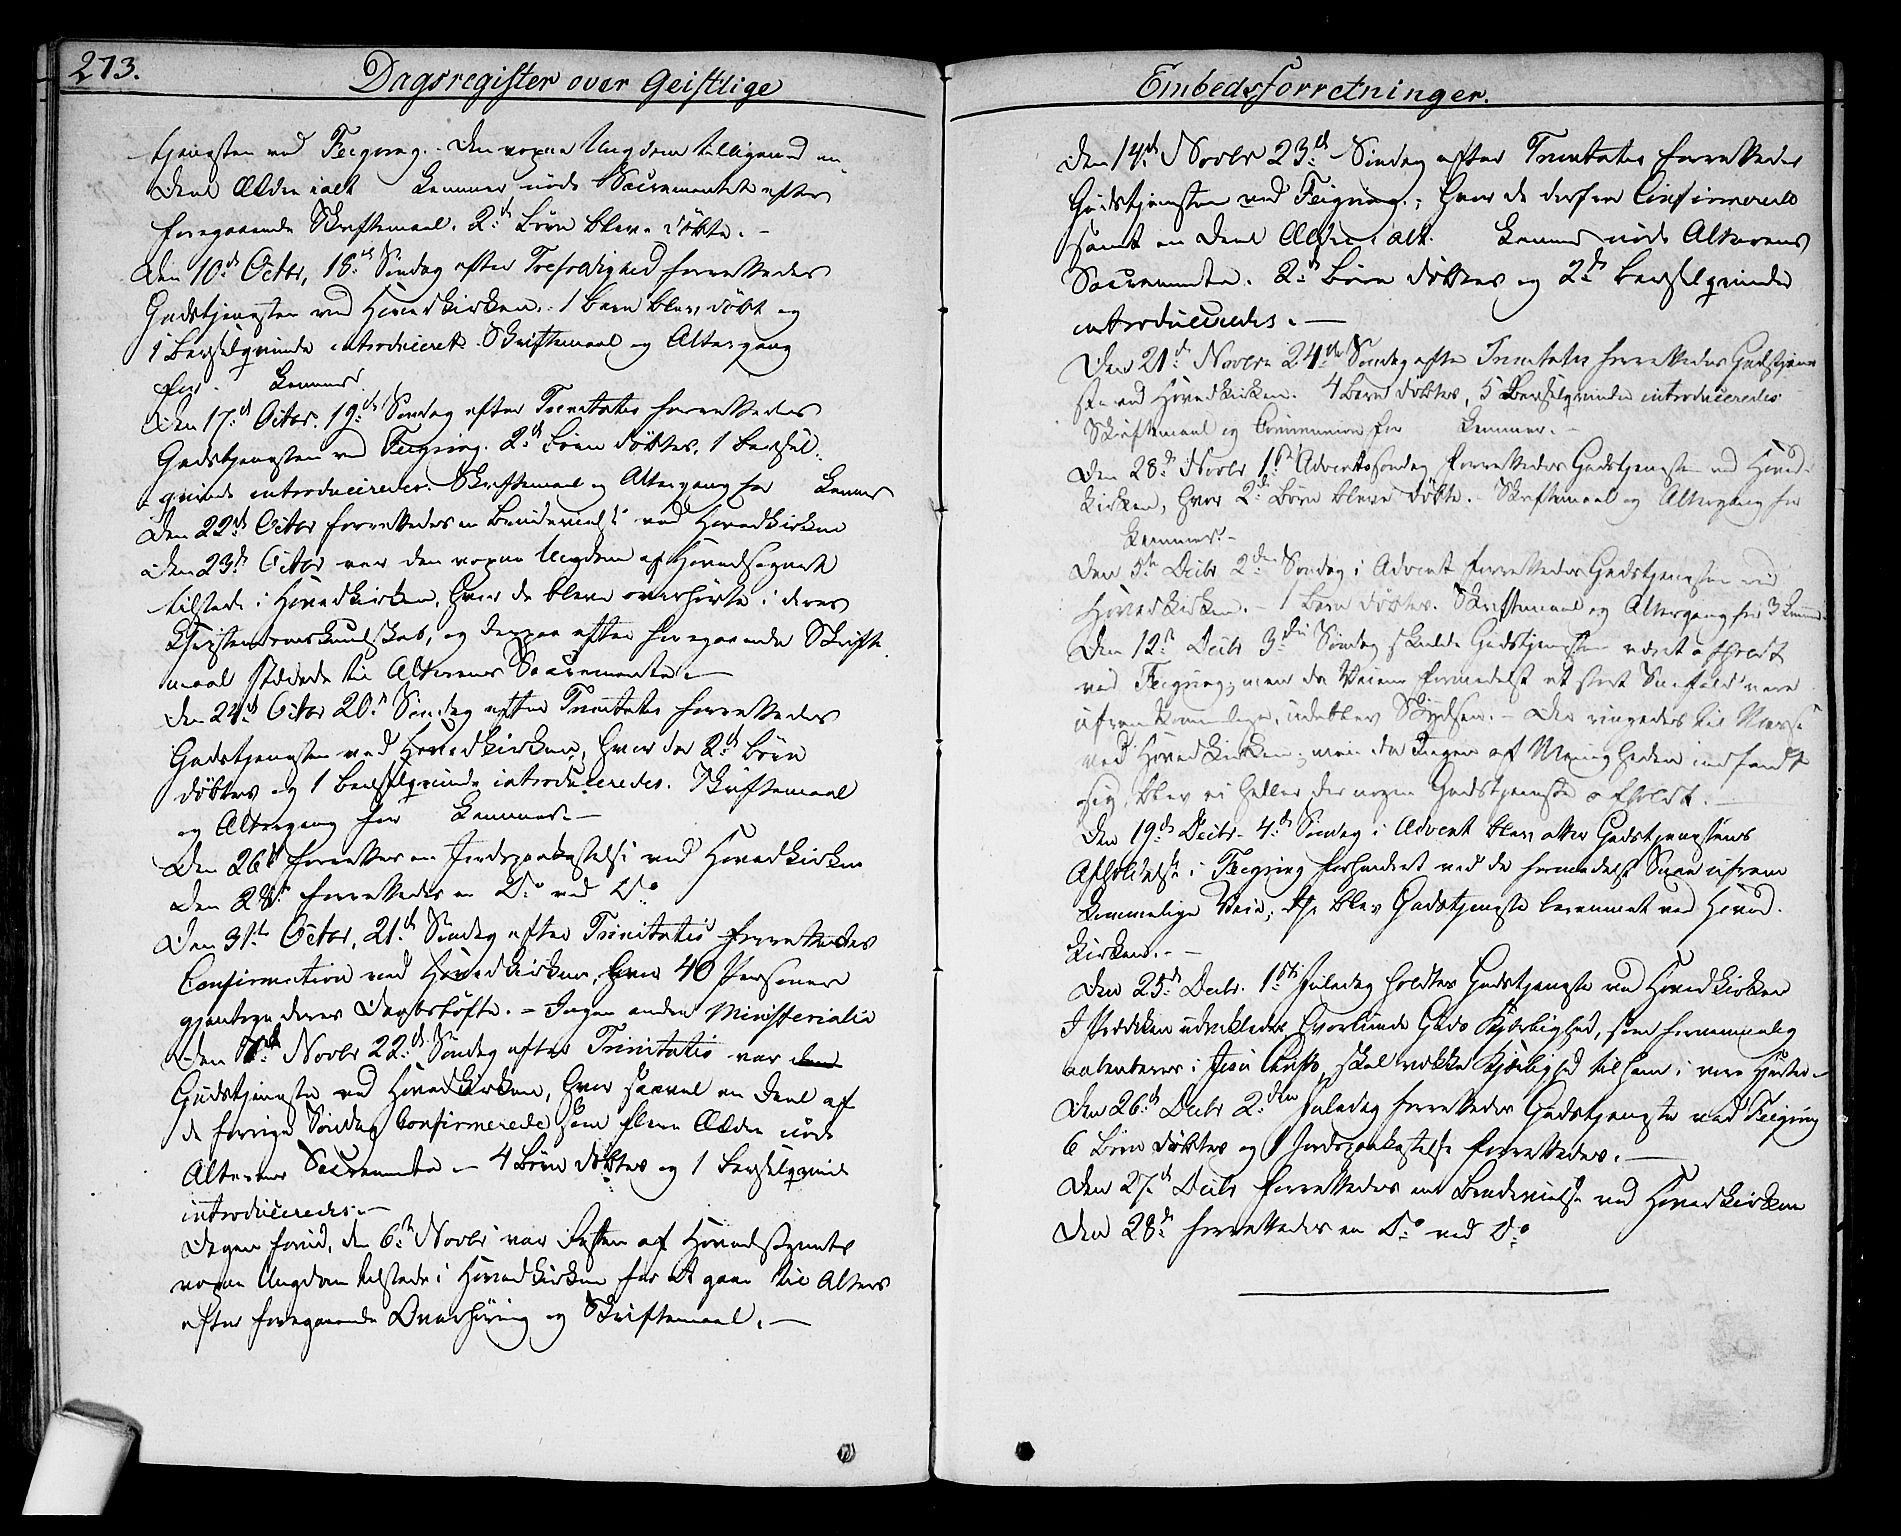 273.
Dagsregister over Geistlige
tjenesten ved Feigring. Den voxne Ungdom tilligemed en
Deel Ældre ialt Lemmer nøde Sacramentet efter
foregaaende Skriftemaal. 2de Børn bleve døbte. –
Den 10de Octbr, 18de Søndag efter Trefoldighed forrettedes
Gudstjenesten ved Hovedkirken. 1 Barn blev døbt og
1 Barselqvinde introduceret. Skriftemaal og Altergang
for Lemmer.
Den 17de Octbr. 19de Søndag efter Trinitatis forrettedes
Gudstjenesten ved Feigring. 2de Børn døbtes, 1 Barsel-
qvinde introduceredes. Skriftemaal og Altergang for Lemmer
Den 22de Octbr forrettedes en Brudevielse ved Hovedkirken
Den 23de Octbr var den voxne Ungdom af Hovedsognet
tilstede i Hovedkirken, hvor de bleve overhørte i deres
Christendomskundskab, og derpaa efter foregaaende Skrifte-
maal stedede til Alterens Sacramente. –
Den 24de Octbr 20de Søndag efter Trinitatis forrettedes
Gudstjenesten ved Hovedkirken, hvor der 2de Børn
døbtes og 1 Barselqvinde introduceredes. Skriftemaal
og Altergang for Lemmer. –
Den 26de forrettes en Jordspaakastelse ved Hovedkirken
Den 28de forrettedes en Do ved Do
Den 31te Octbr, 21de Søndag efter Trinitatis forrettedes
Confirmation ved Hovedkirken, hvor 40 Personer
gjentoge deres Daabsløfte. – Ingen anden Ministerialia
Den 7de Novbr 22de Søndag efter Trinitatis var den
Gudstjeneste ved Hovedkirken, hvor saavel en Deel af
de forrige Søndag Confirmerede som flere Ældre nøde
Alterens Sacramente – 4 Børn døbtes og 1 Barselqvinde
introduceredes. –
Dagen forud, den 6te Novbr var Resten af Hovedsognets
voxne Ungdom tilstede i Hovedkirken for at gaae til Alters
efter foregaaende Overhøring og Skriftemaal. –
Embedsforretninger.
Den 14de Novbr 23de Søndag efter Trinitatis forrettedes
Gudstjenesten ved Feigring, hvor de derfra Confirmerede
samt en Deel Ældre, i alt Lemmer nøde Alterens
Sacramente. 2de Børn døbtes og 2de Barselqvinder
introduceredes. –
Den 21de Novbr 24de Søndag efter Trinitatis forrettedes Gudstjene-
sten ved Hovedkirken. 4 Børn døbtes, 5 Barselqvinder introduceredes
Skriftemaal og Communion for Lemmer. –
Den 28de Novbr 1ste Adventssøndag forrettedes Gudstjenesten ved Hoved-
kirken, hvor 2de Børn bleve døbte. – Skriftemaal og Altergang for
Lemmer. –
Den 5te Decbr 2den Søndag i Advent forrettedes Gudstjenesten ved
Hovedkirken. – 1 Barn døbtes. Skriftemaal og Altergang for 3 Lemmer.
Den 12te Decbr 3die Søndag skulde Gudstjenesten været afholdt
ved Feigring, men da Veiene formedelst et stort Sneefald vare
ufremkommelige, udeblev Skydsen. – Der ringedes til Messe
ved Hovedkirken, men da Ingen af Menigheden indfandt
sig, blev ei heller der nogen Gudstjeneste afholdt. –
Den 19de Decbr. 4de Søndag i Advent blev atter Gudstjenestens
Afholdelse i Feigring forhindret ved de formedelst Snee ufrem-
kommelige Veie, dg blev Gudstjeneste berammet ved Hoved-
kirken. –
Den 25de Decbr. 1ste Juledag holdtes Gudstjeneste ved Hovedkirken
I Prædiken udvikledes hvorlunde Guds Kjærlighed, som fornemmelig
aabenbares i Jesu Christo, skal vække Kjærlighed til ham i vore Hjerter. –
Den 26de Decbr 2den Juledag forrettedes Gudstjeneste ved Feigring
6 Børn døbtes og 1 Jordspaakastelse forrettedes. –
Den 27de Decbr forrettedes en Brudevielse ved Hovedkirken
Den 28de forrettedes en Do ved Do